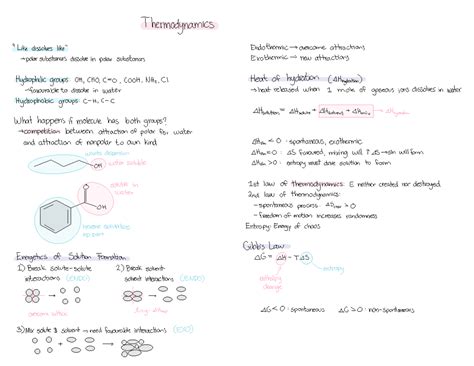 Thermodynamics
"Like dissolves like"
→polar substances dissolve in polar substances
Hydrophilic groups: OH, CHO, C=O, COOH, NH₂, Cl
→favourable to dissolve in water
Hydrophobic groups: C-H, C-C
What happens if molecule has both groups?
→competition between attraction of polar to water
and attraction of nonpolar to own kind
OH
water soluble
O
OH
soluble in
water
Energetics of Solution Formation
1) Break solute-solute
interactions (ENDO)
2) Break solvent-
solvent interactions (ENDO)
3) Mix solute & solvent → need favourable interactions (EXO)
Endothermic → overcome attractions
Exothermic → new attractions
Heat of hydration (ΔHhydration)
→heat released when 1 mole of gaseous ions dissolves in water
<0 : spontaneous, exothermic
=0 : ΔS favoured, mixing will ↑ΔS → soln will form
>0 : entropy must drive solution to form
1st law of thermodynamics: E neither created nor destroyed
2nd law of thermodynamics:
-freedom of motion increases randomness
Entropy: Energy of chaos
Gibbs Law
ΔG = ΔH - TΔS
enthalpy
change
entropy
ΔG<0 : spontaneous
ΔG>0 : non-spontaneous